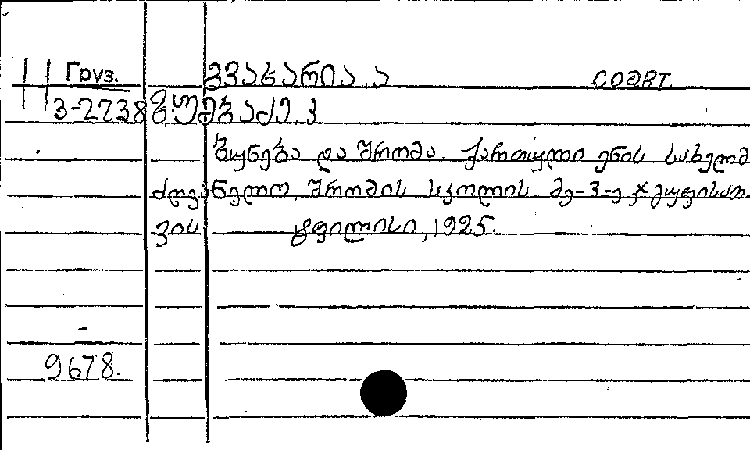 Груз. გვაზარია ა
3-2238 გუმბაძე. კ
ბუნება და შრომა. ქართული ენის სახელმ
ძღვანელო, შრომის სკოლის მე-3-ე ჯგუფისათ
ვის ტფილისი, 1925.
9678.